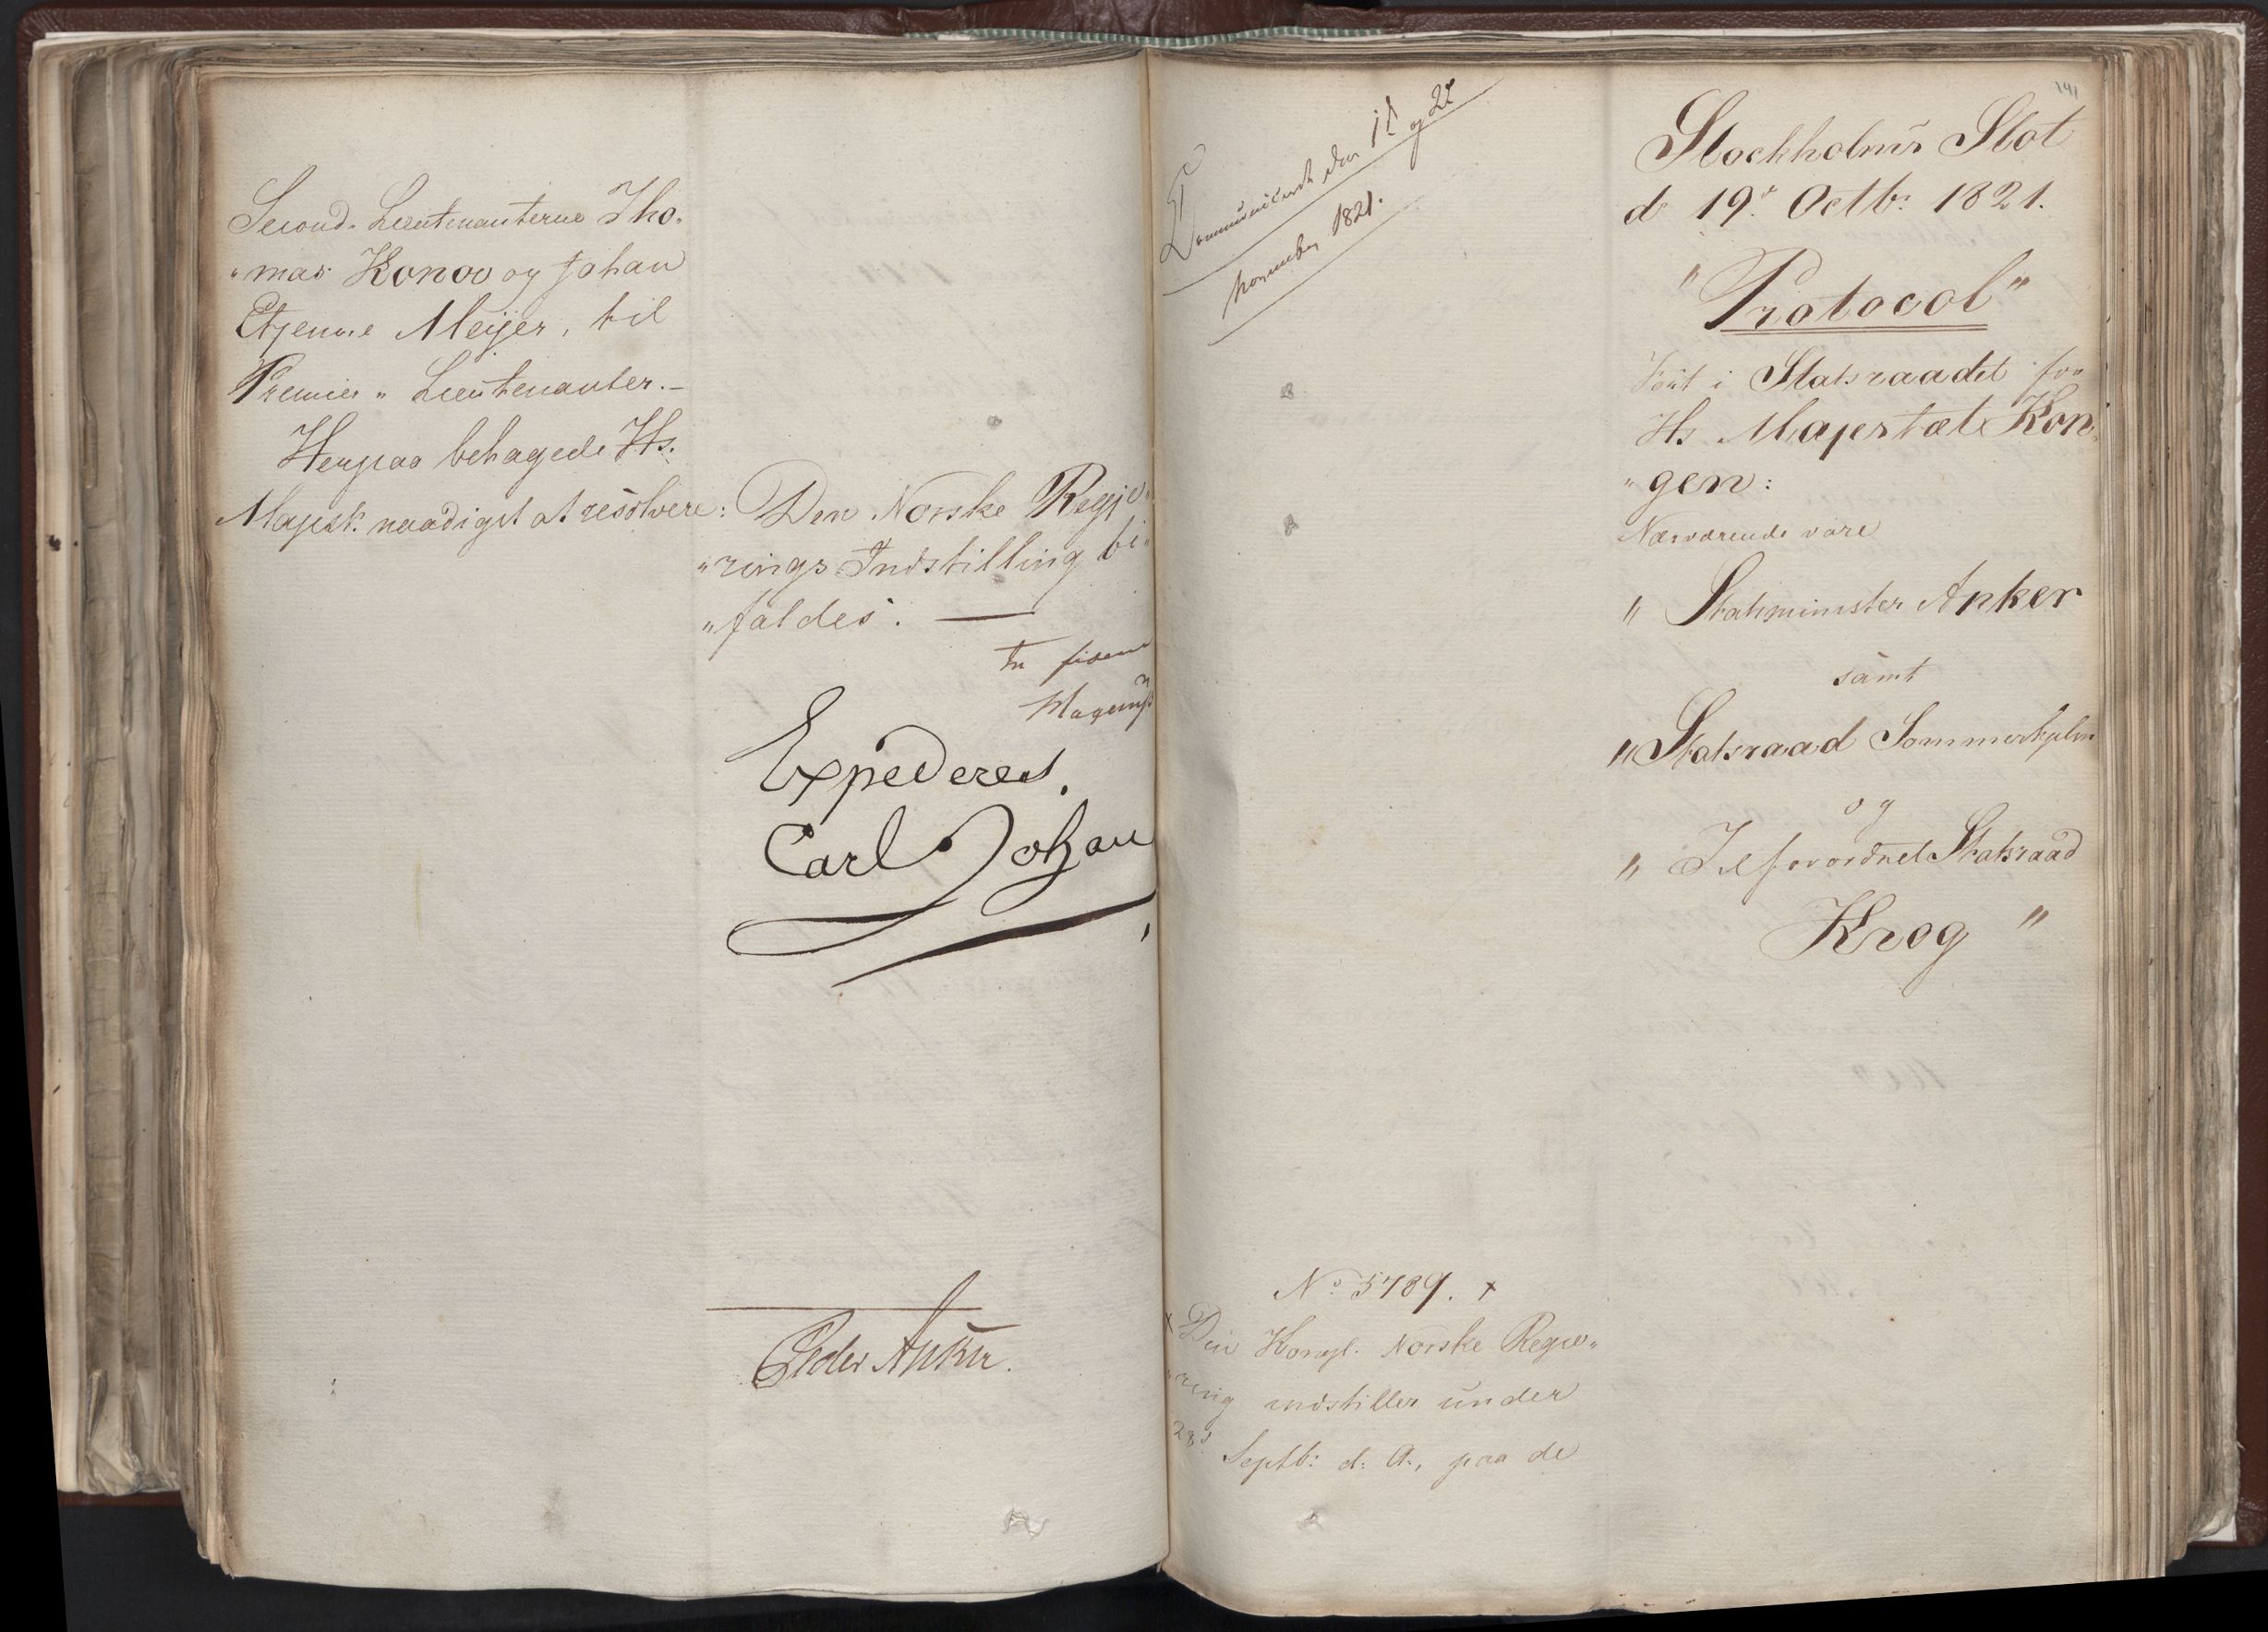 Second-Lieutenanterne Tho„
„mas Konow og Johan
Etjenne Meijer, til
Premier„Lieutenanter.–
Herpaa behagede Hs.
Majest. naadigst at resolvere:
Den Norske Regje„
„rings Indstilling bi„
„faldes. —
In fidem
Expederes.
Carl Johan
Peder Anker.
Communiceret den 1ste og 22
November 1821.
141
Stockholms Slot
d. 19de Octb: 1821.
"Protocol"
ført i Statsraadet for
Hs Majestæt Kon„
„gen:
Nærværende vare
" Statsminister Anker
samt
" Statsraad Sommerhjelm
og
" Tilforordnet Statsraad
Krog "
No 5789. x
x Den Kongl. Norske Regje„
„ring indstiller under
28de Septb: d: A:, paa de